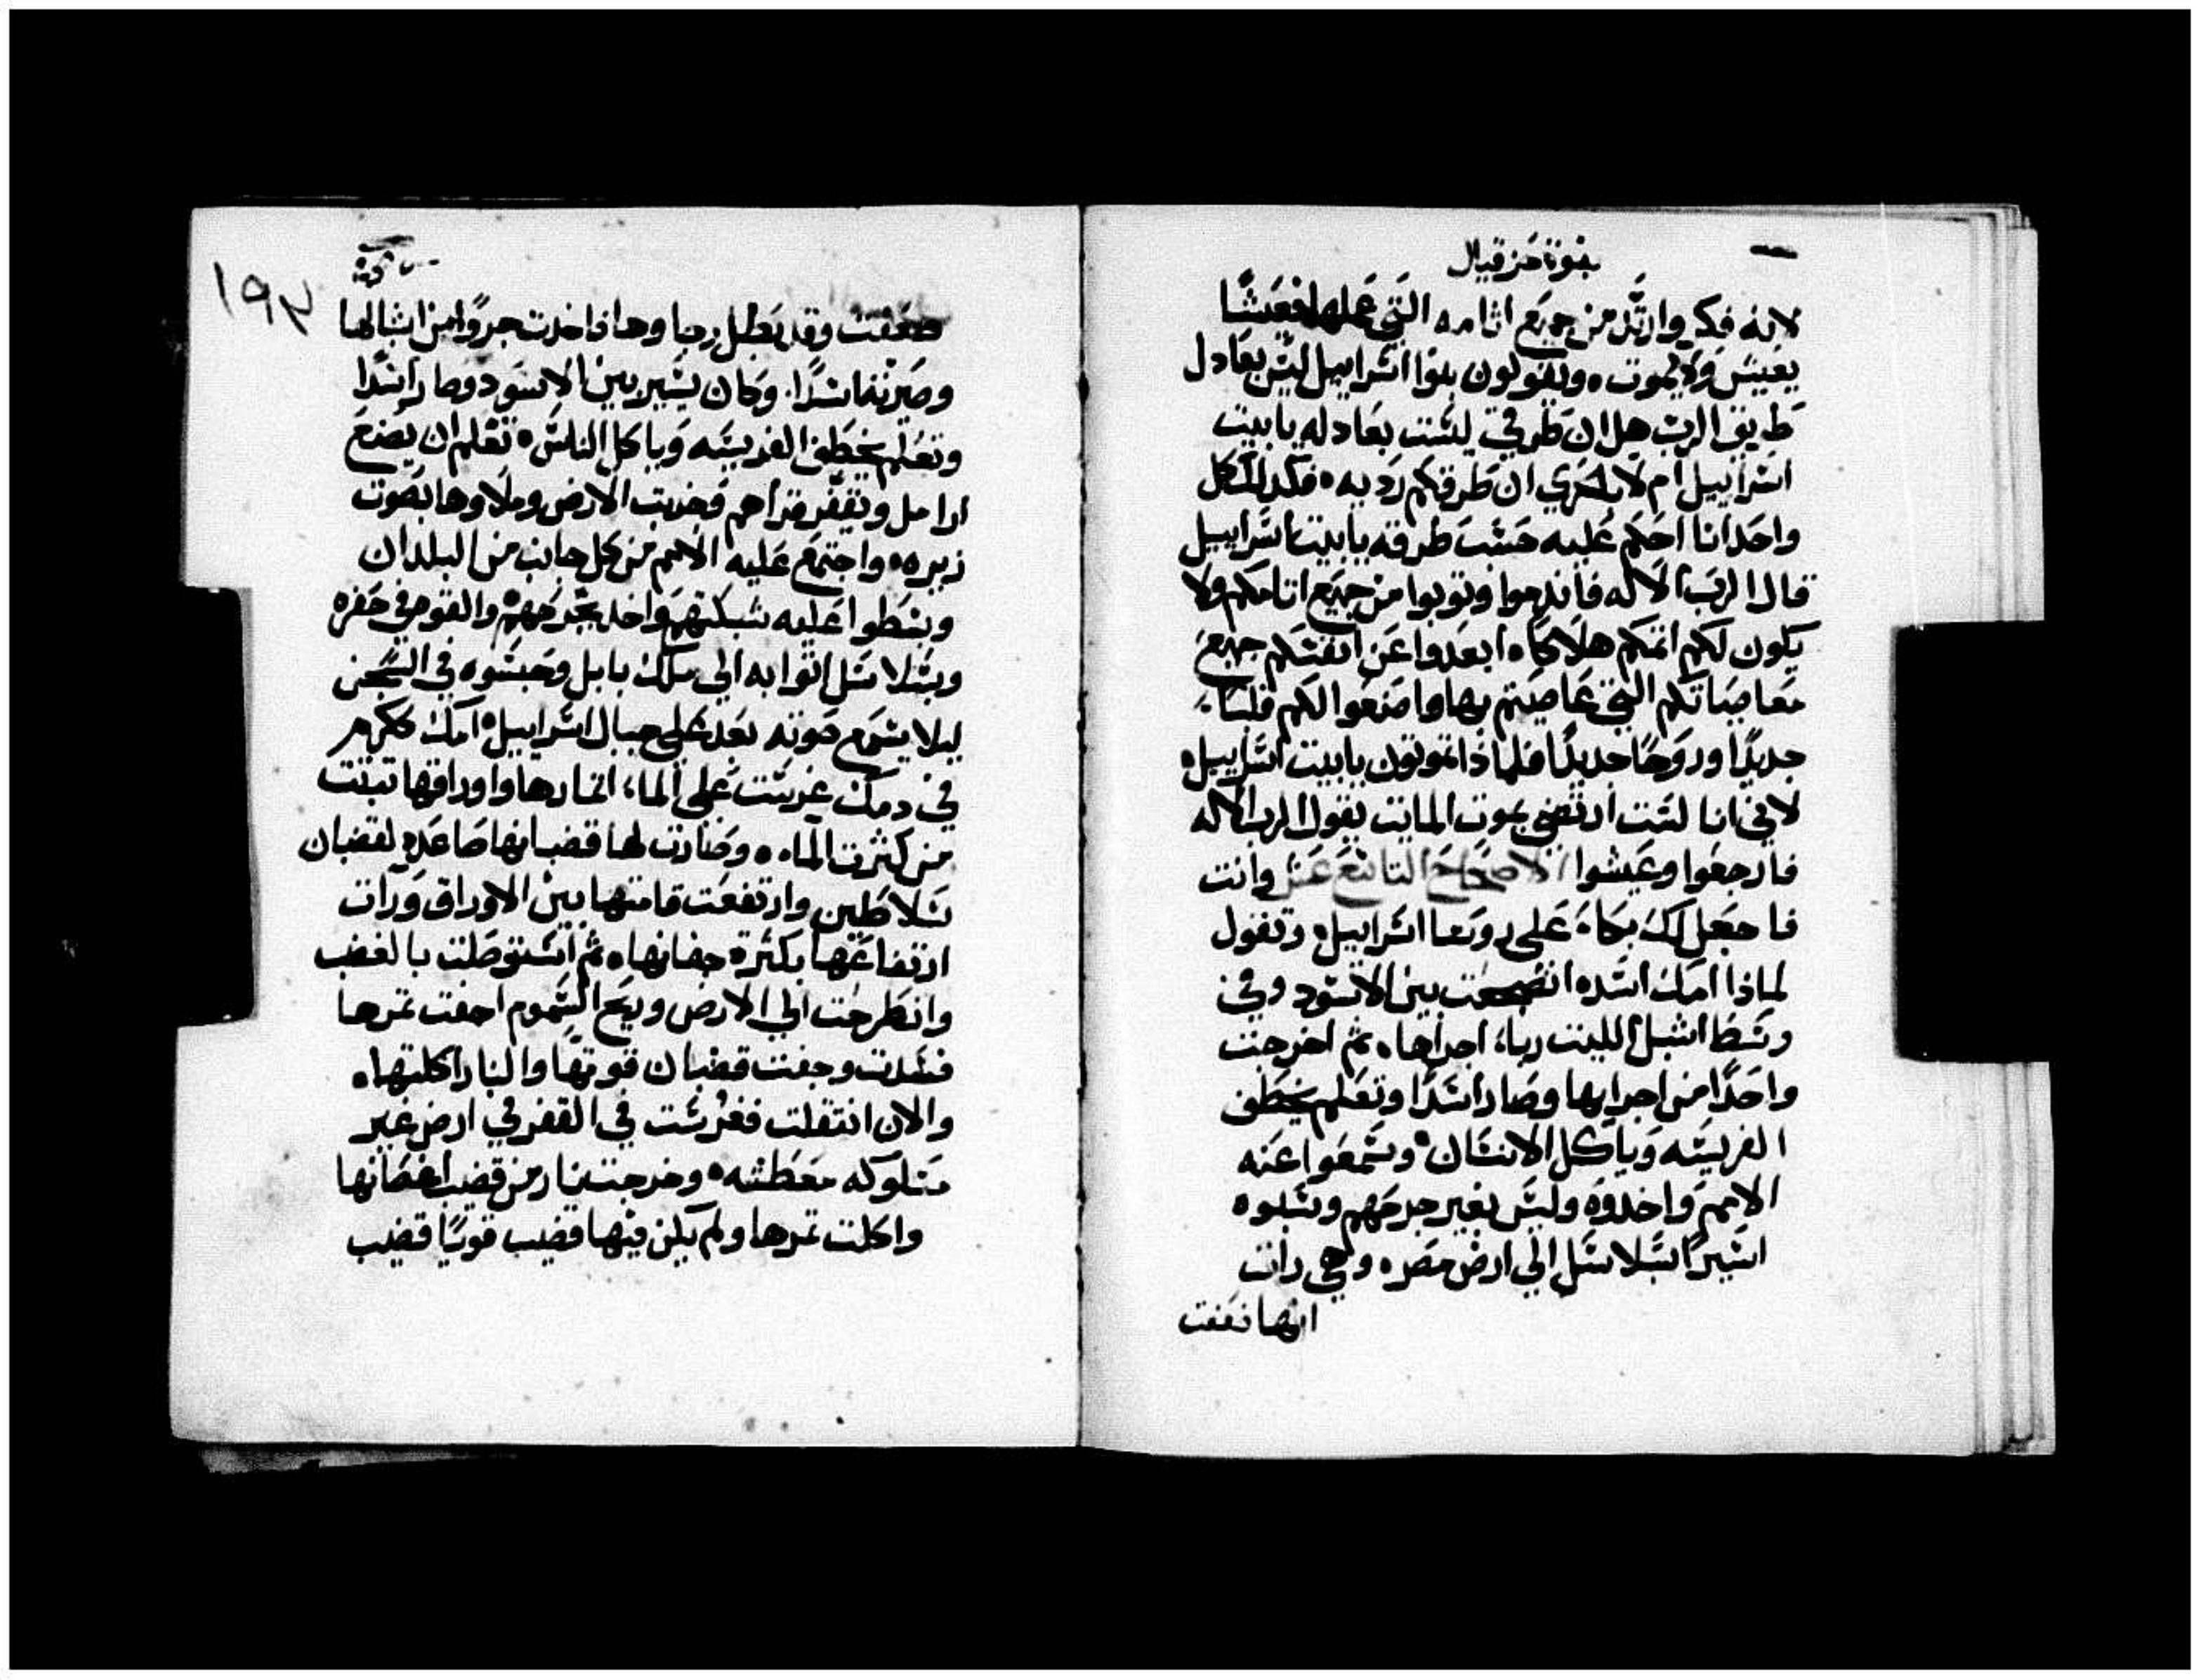 نبوة حزقيال
لانه فكر وارتد من جميع اثامه التي عملها فعيشًا
يعيش ولا يموت ٥ ويقولون بنوا اسراييل ليس بعادل
طريق الرب هل ان طرقي ليست بعادله يا بيت
اسراييل ام لا بالحري ان طرقكم رديه ٥ فلذلك كل
واحد انا احكم عليه حسب طرقه يا بيت اسراييل
قال الرب الاله فاندموا وتوبوا من جميع اثامكم ولا
يكون لكم اثمكم هلاكًا ٥ ابعدوا عن انفسكم جميع
معاصياتكم التي عاصيتم بها واصنعوا لكم قلبًا
جديدًا وروحًا جديدًا فلماذا تموتون يا بيت اسراييل ٥
لاني انا لست ارتضي بموت المايت يقول الرب الاله
فارجعوا وعيشوا الاصحاح التاسع عشر وانت
فاجعل لك بكاء على روسا اسراييل ٥ وتقول
لماذا امك اسده انضجعت بين الاسود وفي
وسط اشبل الليث ربا اجراها ٥ ثم اخرجت
واحدًا من اجرايها وصار اسدًا وتعلم يخطف
الفريسه وياكل الانسان ٥ وسمعوا عنه
الامم واخدوه وليس بغير جرحهم وسبوه
اسيرًا بسلاسل الي ارض مصر ٥ وهي رات
انها ضعفت
١٩٣
ضعفت وقد بطل رجاوها فاخدت جروًا من اشبالها
وصيرته اسدًا. وكان يسير بين الاسود وصار اسدًا
وتعلم يخطف الفريسه وياكل الناس ٥ تعلم ان يصنع
ارامل ويقفر قراهم فخربت الارض وملاوها بصوت
زيره ٥ واجتمع عليه الامم من كل جانب من البلدان
وبسطوا عليه شبكتهم واخد بجرحهم والقوه في حفره
وبسلاسل اتوا به الي ملك بابل وحبسوه في السجن
ليلا يسمع صوته بعد علي جبال اسراييل ٥ امك ككرم
في دمك غرست علي الماء اثمارها واوراقها نبتت
من كثرت الماء ٥ وصارت لها قضبانها صاعده لقضبان
سلاطين وارتفعت قامتها بين الاوراق ورات
ارتفاعها بكثرة جفانها ٥ ثم استوصلت بالغضب
وانطرحت الي الارض وريح السموم اجفت ثمرها
فسدت وجفت قضبان قوتها والنار اكلتها ٥
والان انتقلت فغرست في القفر في ارض غير
مسلوكه معطشه ٥ وخرجت نار من قضب اغصانها
واكلت ثمرها ولم يكن فيها قضيب قويًا قضيب